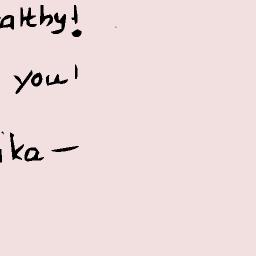 althy!
you!
ika —